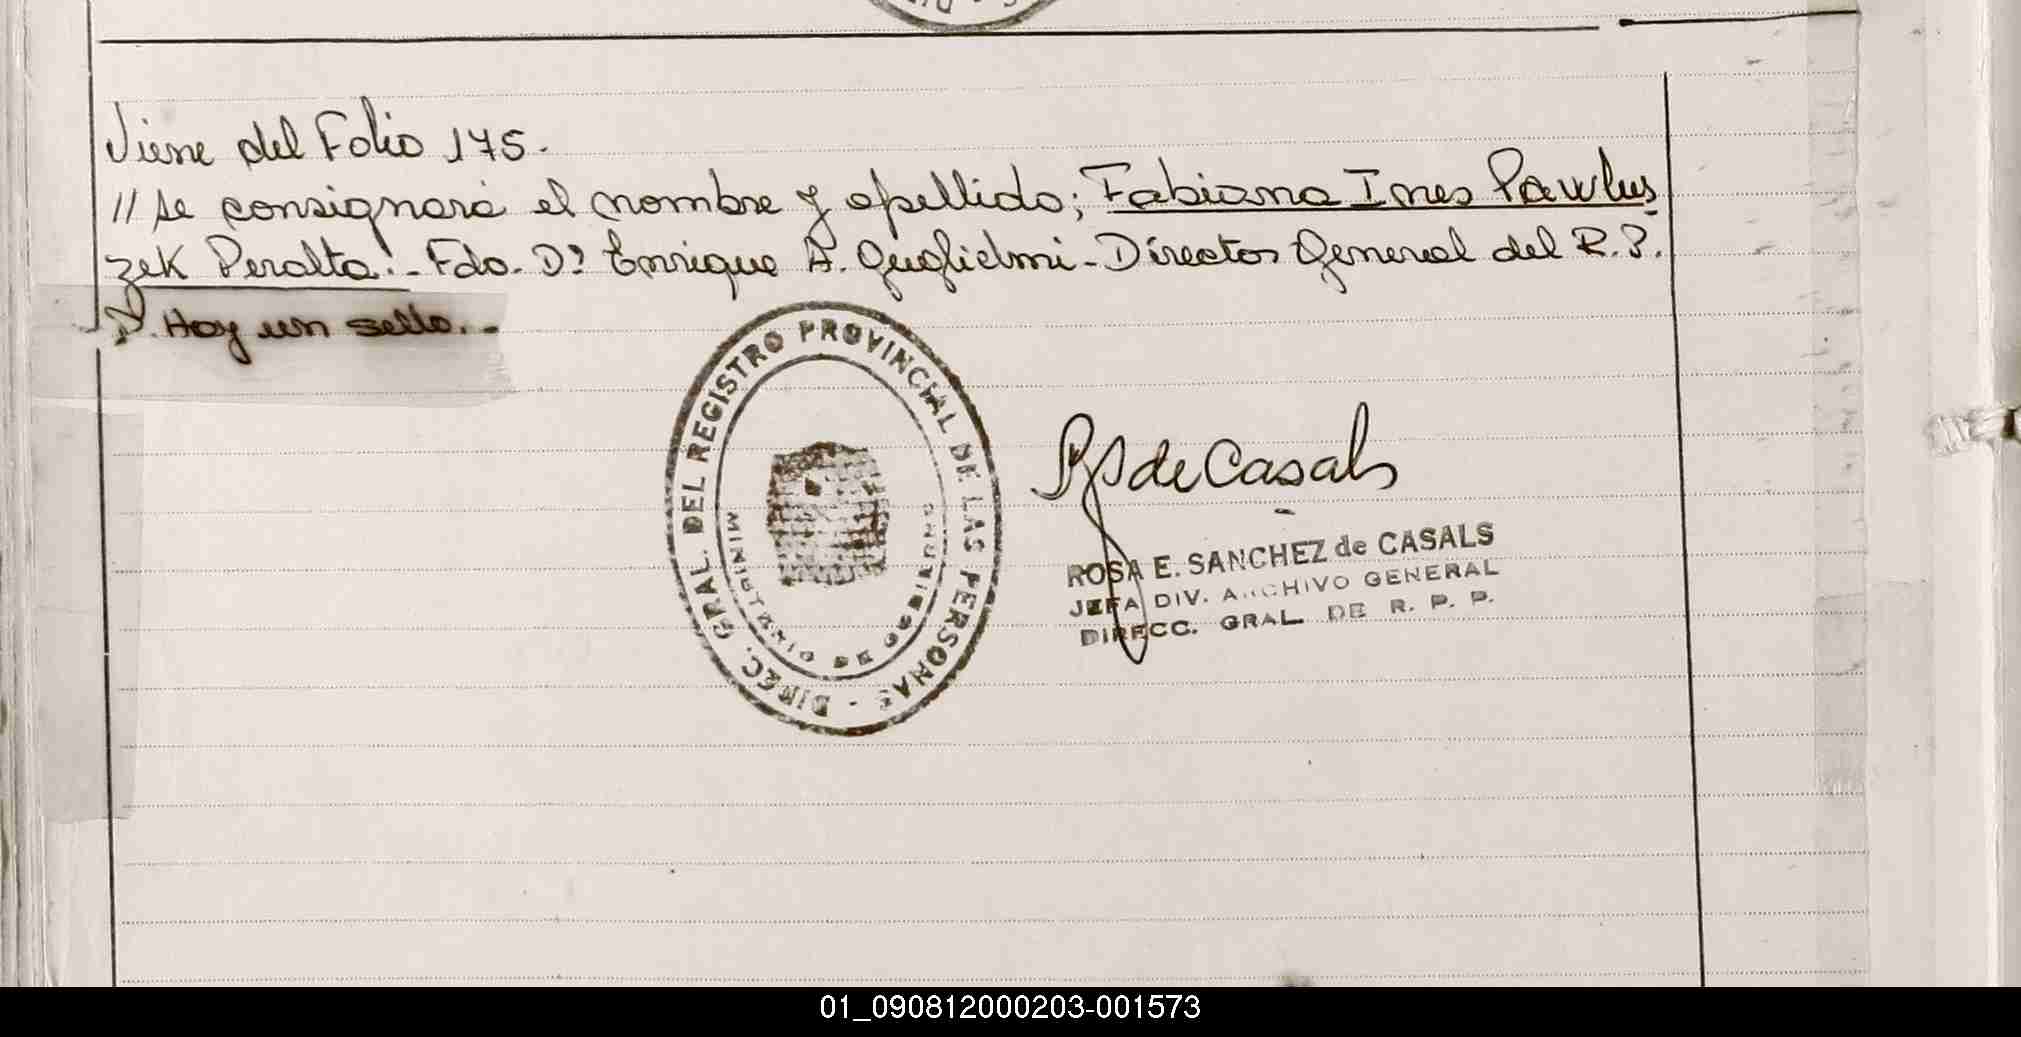 Viene del Folio 175.-
// se consignará el nombre y apellido; Fabiana Ines Pawlus
zek Peralta.- Fdo. Dº Enrique A. Guglielmi - Director General del R. P.
P. Hay un sello.-
DIREC. GRAL. DEL REGISTRO PROVINCIAL DE LAS PERSONAS -
MINISTERIO DE GOBIERNO
RS de Casals
ROSA E. SANCHEZ de CASALS
JEFA DIV. ARCHIVO GENERAL
DIRECC. GRAL. DE R. P. P.
01_090812000203-001573